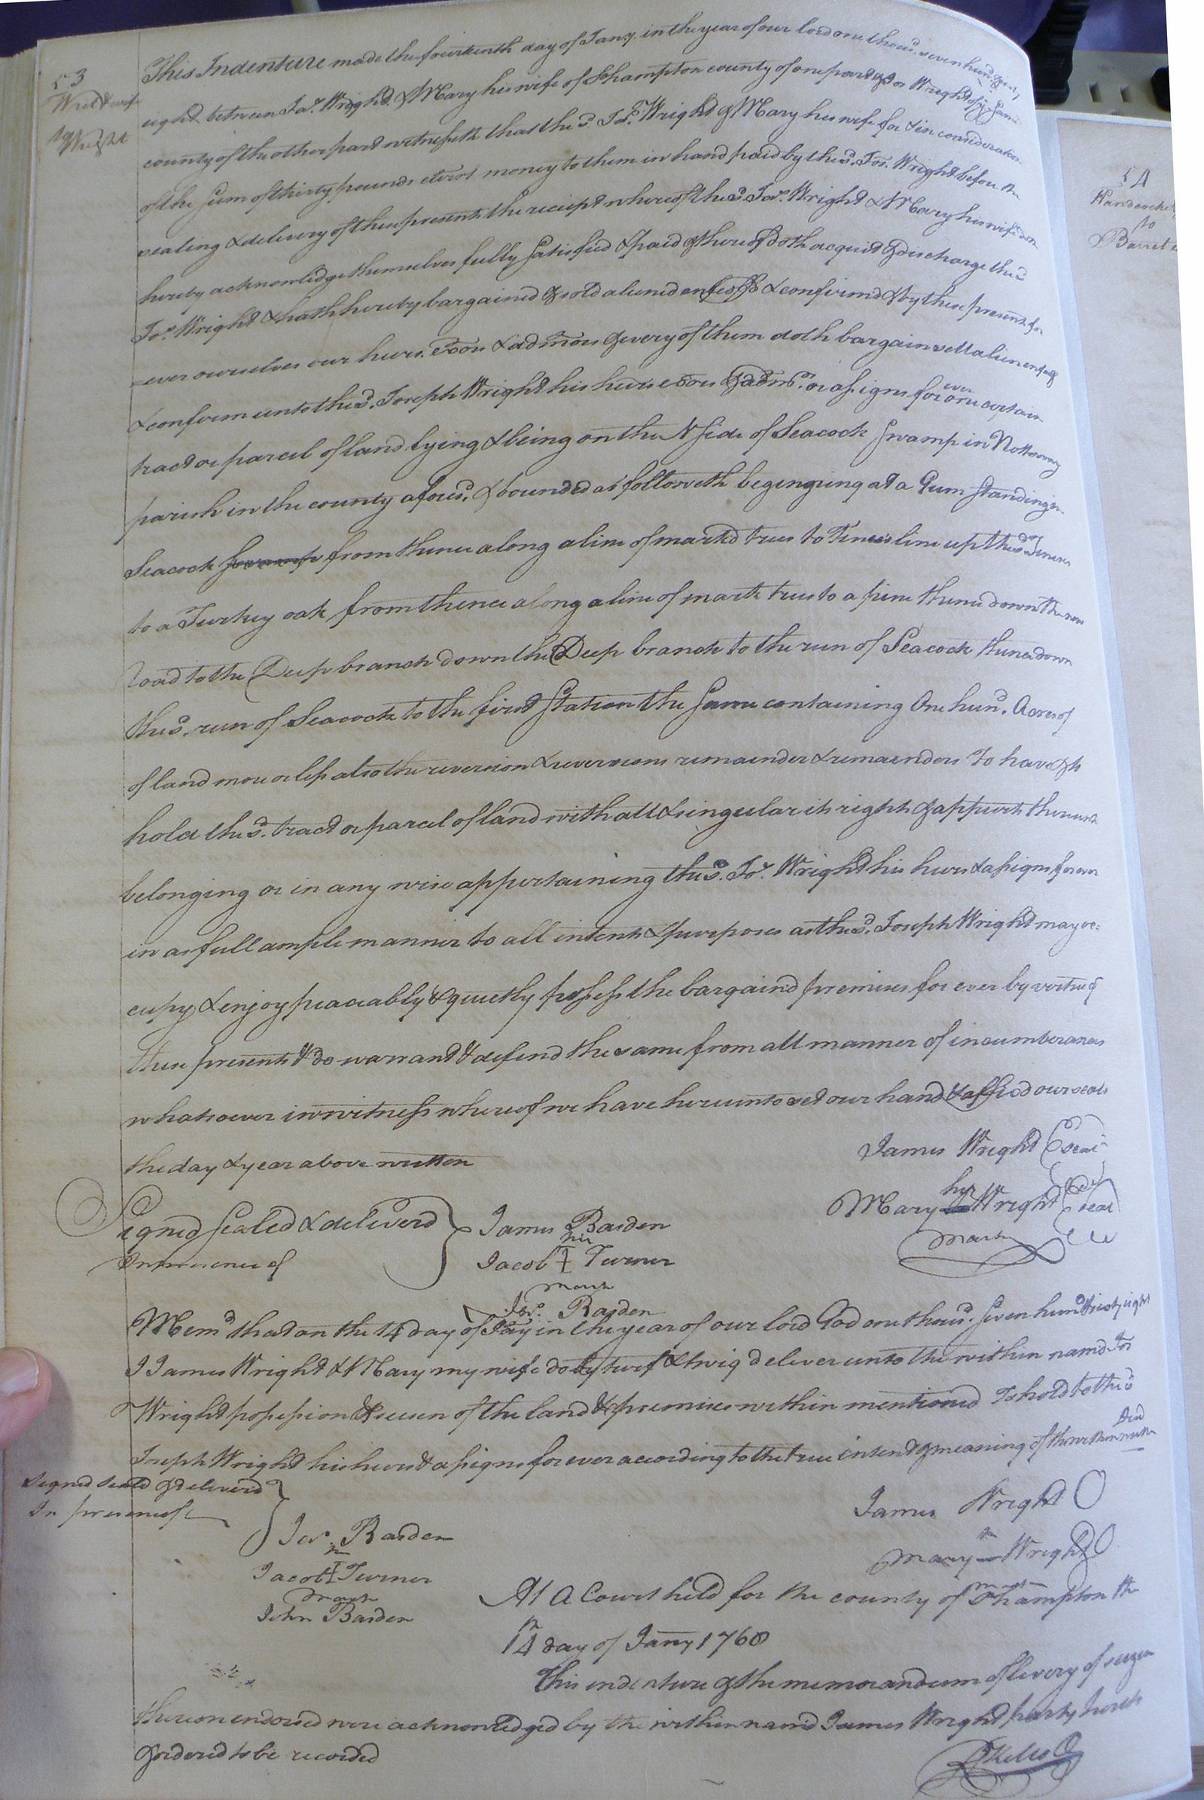 53
Wright & wife
to
Wright
This Indenture made the fourteenth day of Jany. in the year of our lord one thous. seven hund. sixty
eight between Jas. Wright & Mary his wife of Sohampton county of one part & Jos Wright of ye same
county of the other part witnesseth that the sd. Jas. Wright & Mary his wife for & in consideration
of the sum of thirty pounds current money to them in hand paid by the sd. Jos. Wright before the
sealing & delivery of these presents the receipt whereof the sd. Jas. Wright & Mary his wife doth
hereby acknowledge themselves fully satisfied & paid & thereof doth acquit & discharge the sd
Jos. Wright & hath hereby bargained & sold aliened enfeoff & confirmd & by these presents for
ever ourselves our heirs Exors & admors & every of them doth bargain sell alien enfeoff
& confirm unto the sd. Joseph Wright his heirs exors & adms. or assigns for ever one certain
tract or parcel of land lying & being on the N side of Seacock swamp in Nottoway
parish in the county aforesd. & bounded as followeth begenging at a Gum standing in
Seacock from thence along a line of markd trees to line up the sd
to a Turkey oak from thence along a line of mark trees to a pine thence down the new
road to the Deep branch down the Deep branch to the run of Seacock thence down
the sd. run of Seacock to the first station the same containing One hund. Acres of
of land more or less also the reversion & reversions remainder & remainders To have & to
hold the sd. tract or parcel of land with all & singular its rights & appurts thereunto
belonging or in any wise appertaining the sd. Jos. Wright his heirs & assigns forever
in as full ample manner to all intents & purposes as the sd. Joseph Wright may oc-
cupy & enjoy peaceably & quietly possess the bargaind premises for ever by virtue of
these presents & do warrant & defend the same from all manner of incumberances
whatsoever in witness whereof we have hereunto set our hand & affixd our seals
the day & year above written
James Wright Seal
her
Mary Wright Seal
mark
Signed Sealed & deliverd
In presence of
James Barden
his
Jacob I Turner
mark
Jno. Barden
Memd. that on the 14 day of Jany in the year of our lord God one thous. seven hund. sixty eight
I James Wright & Mary my wife do by turf & twig deliver unto the within namd Jos
Wright possession & seisen of the land & premises within mentioned To hold to the sd
Joseph Wright his heirs & assigns for ever according to the true intent & meaning of the within written
Deed
Signed seald & deliverd
In presence of
James Wright O
Mary Wright O
Jas. Barden
his
Jacob I Turner
mark
John Barden
At a Court held for the county of Sohampton the
14th day of Janry 1768
This indenture & the memorandum of livery of seizen
thereon endorsed were acknowledged by the within named James Wright party hereto
& ordered to be recorded
54
to
Barret